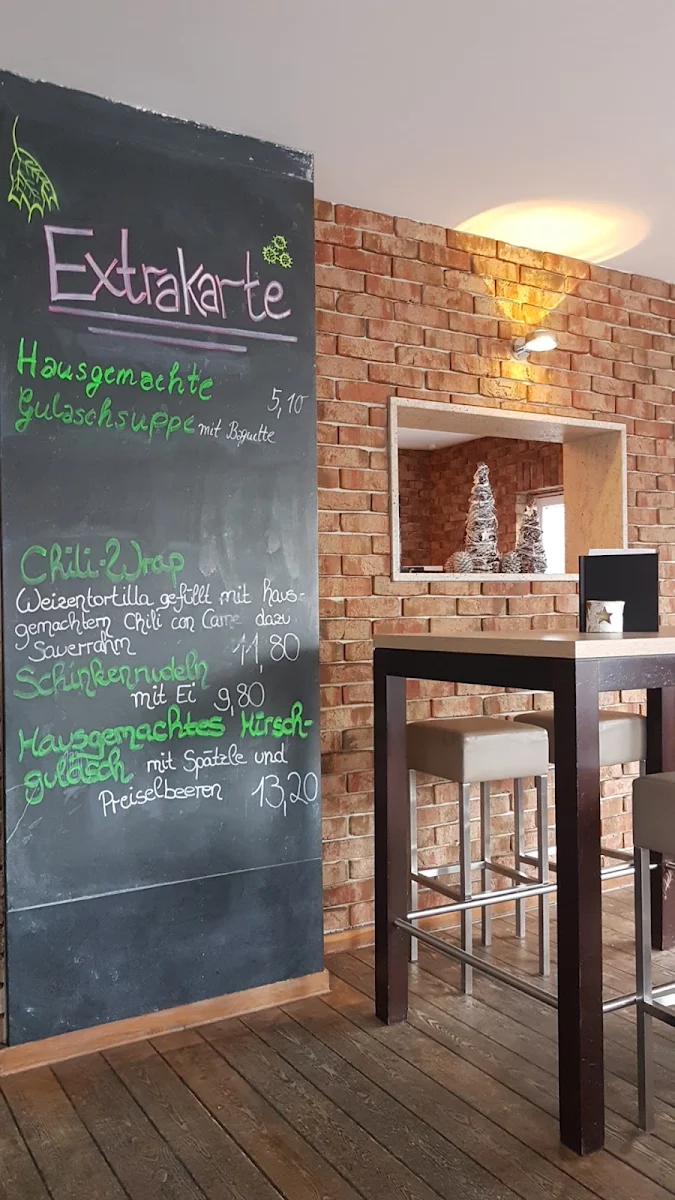 Extrakarte
Hausgemachte
Gulaschsuppe mit Baguette 5,10
Chili-Wrap
Weizentortilla gefüllt mit haus-
gemachtem Chili con Carne dazu
Sauerrahm 11,80
Schinkennudeln
mit Ei 9,80
Hausgemachtes Hirsch-
gulasch mit Spätzle und
Preiselbeeren 13,20